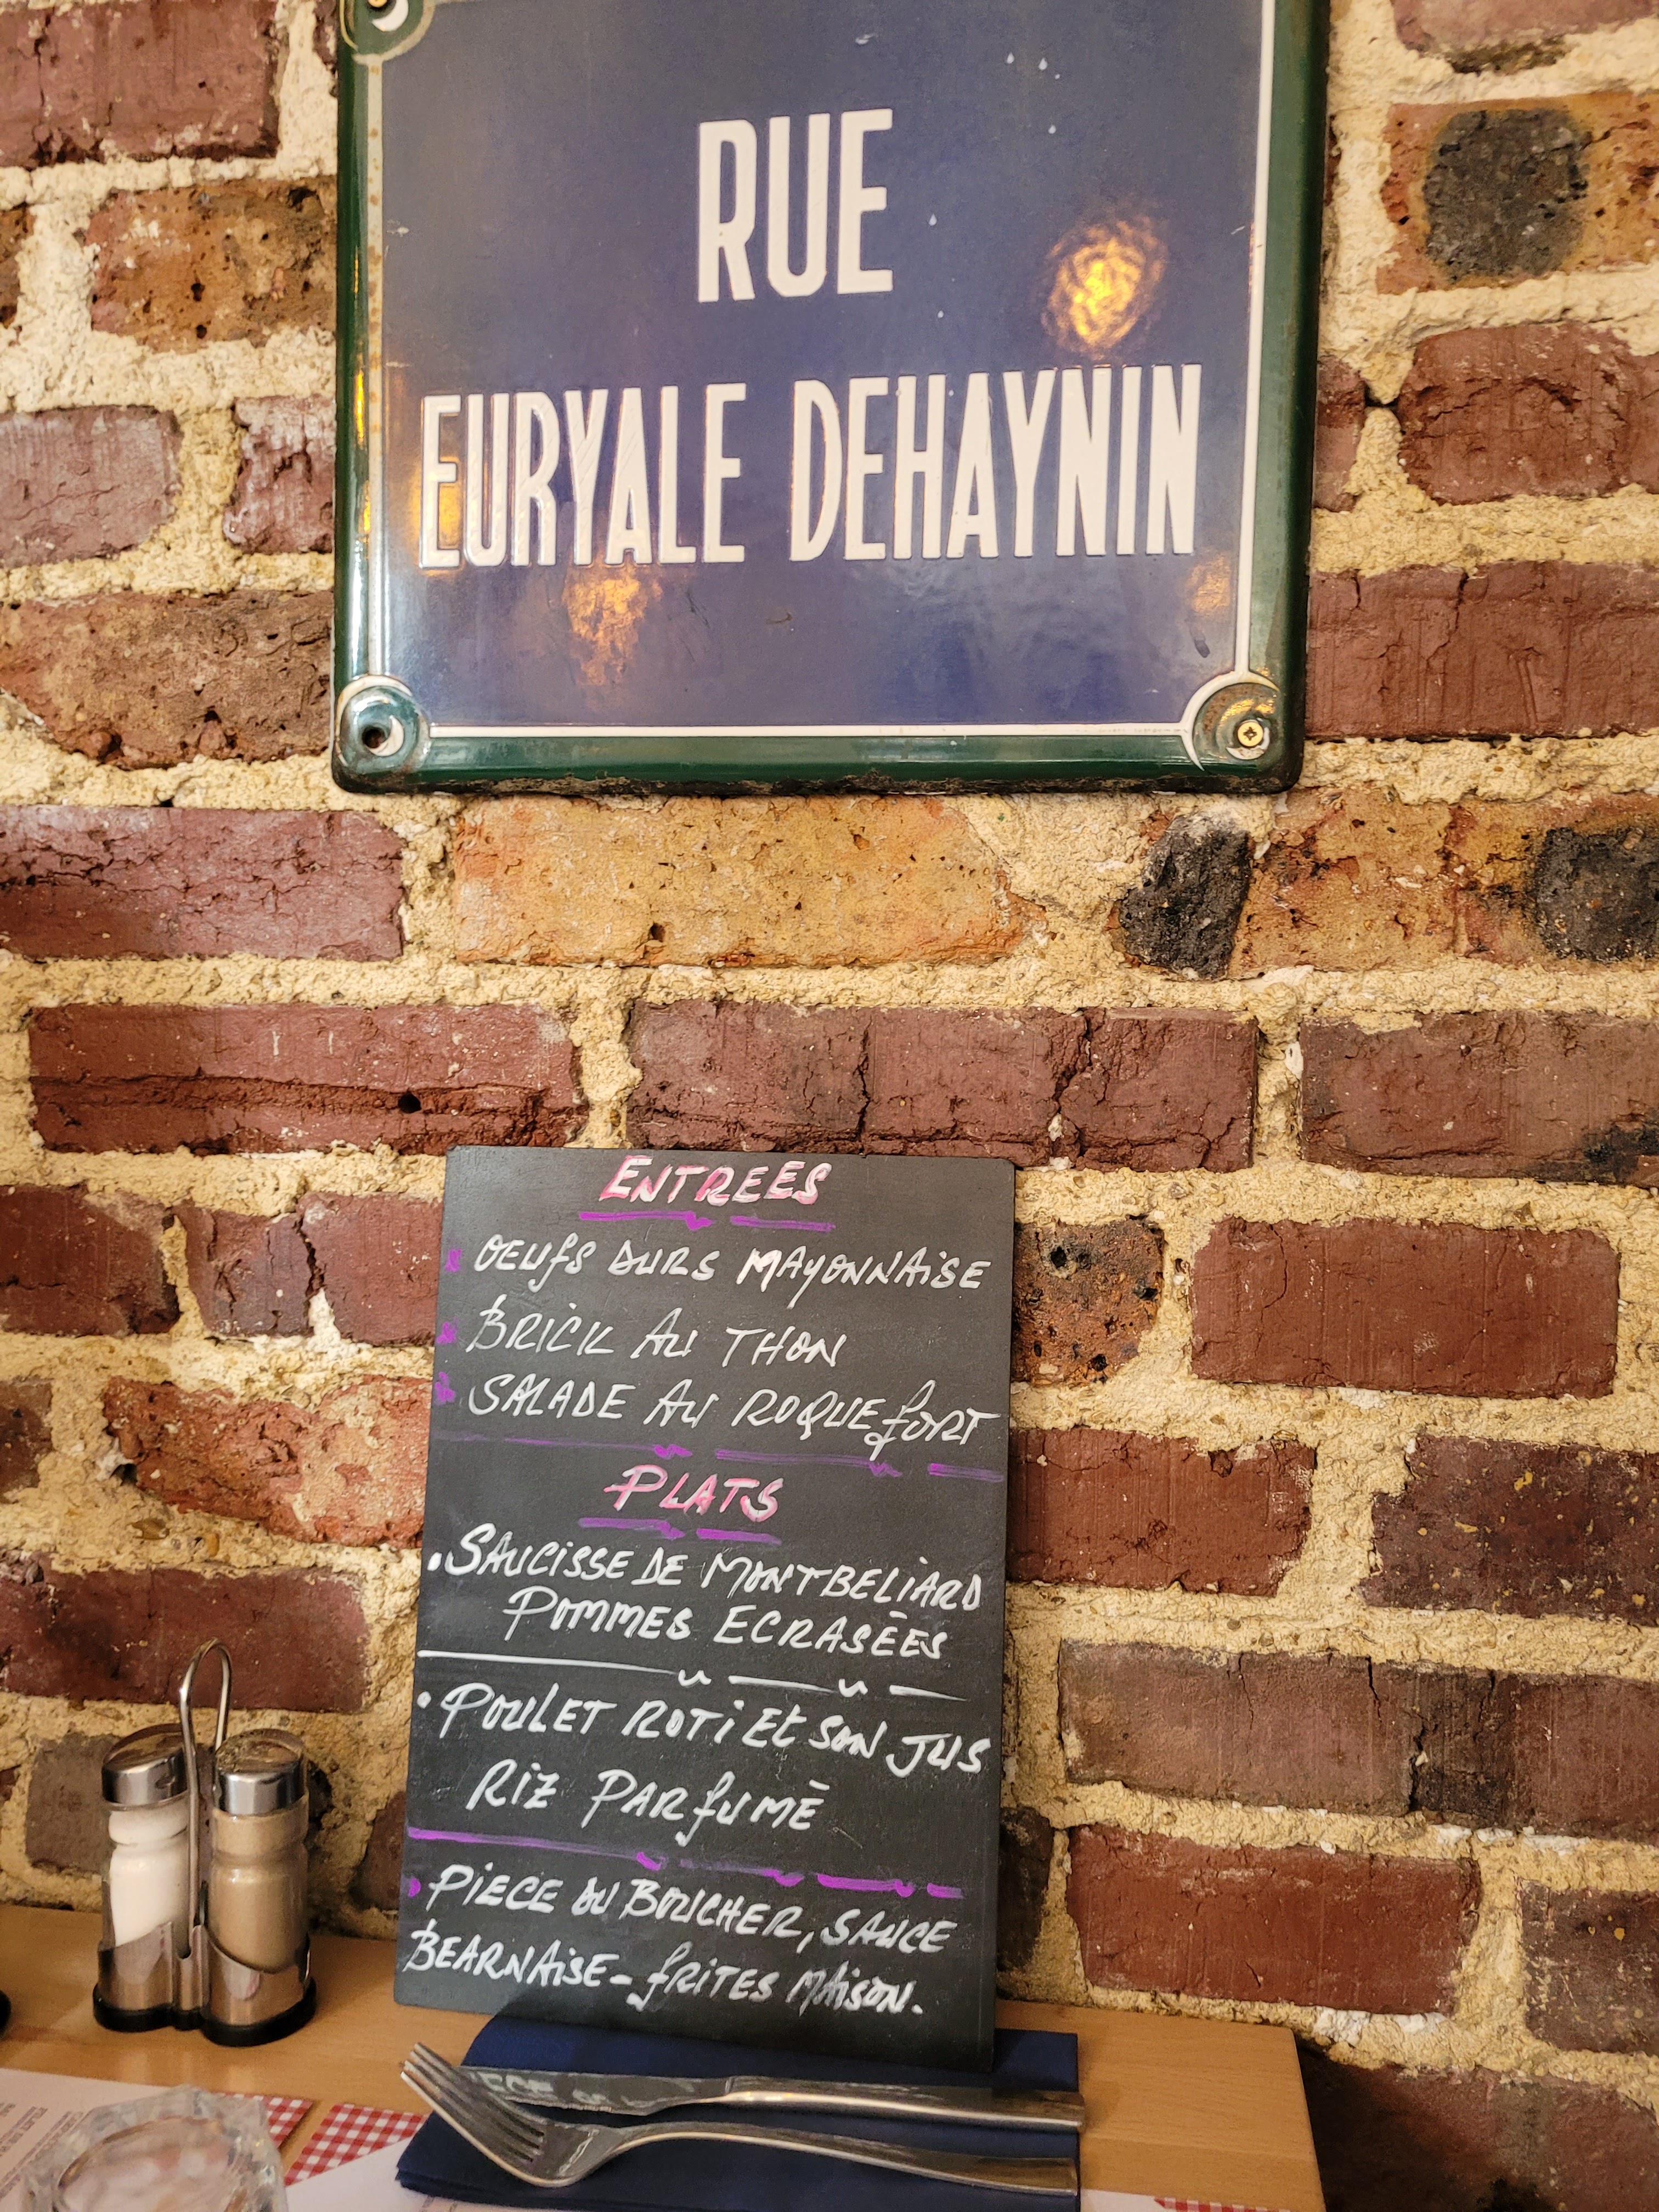 RUE
EURYALE DEHAYNIN
ENTREES
OEUfS DURS MAYONNAISE
BRICK AU THON
SALADE AU ROQUEfORT
PLATS
SAUCISSE DE MONTBELIARD
POMMES ECRASÉES
POULET ROTI Et SON JUS
RIZ PARfUMÉ
PIECE DU BOUCHER, SAUCE
BEARNAISE - fRITES MAISON.